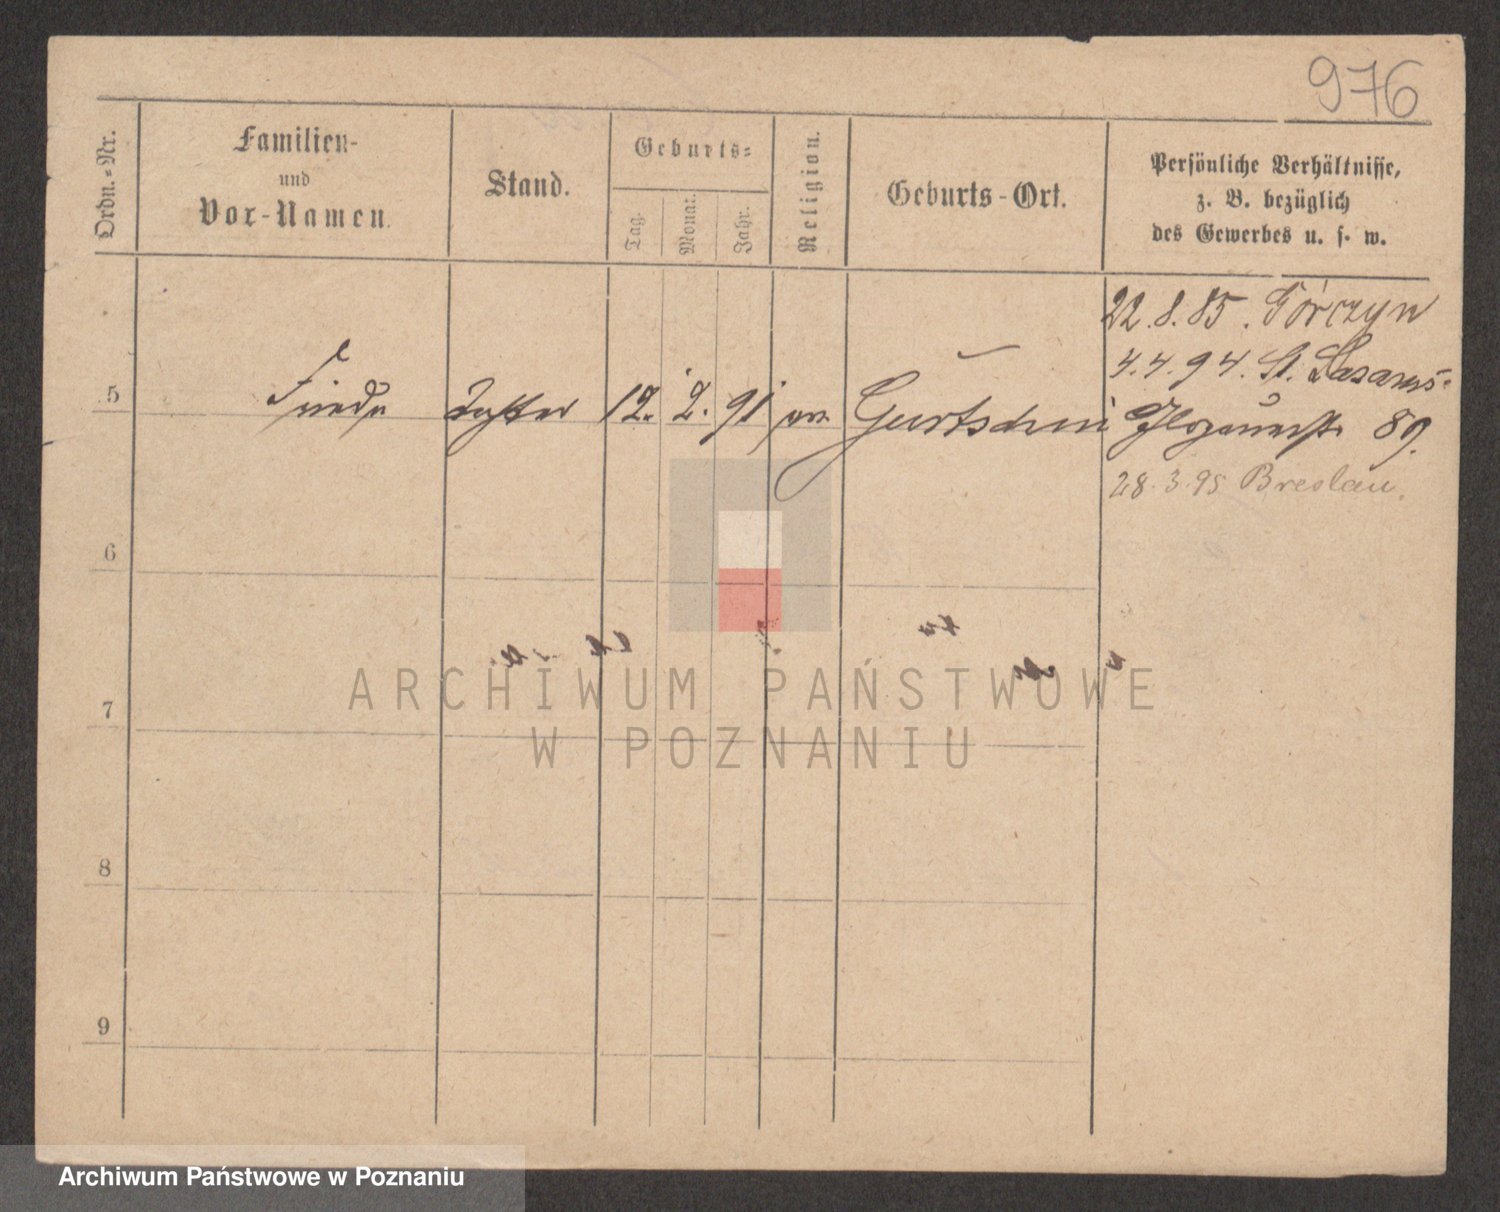 976
Ordn.-Nr.
Familien-
und
Vor-Namen.
Stand.
Geburts-
Tag.
Monat.
Jahr.
Religion.
Geburts-Ort.
Persönliche Verhältnisse,
z. B. bezüglich
des Gewerbes u. s. w.
22.8.85. Górczyn
4.4.94. St. Lazarus-
5 Tochter 12. 2. 91 Gurtschin 89.
28.3.95 Breslau.
6
7
8
9
ARCHIWUM PAŃSTWOWE
W POZNANIU
Archiwum Państwowe w Poznaniu